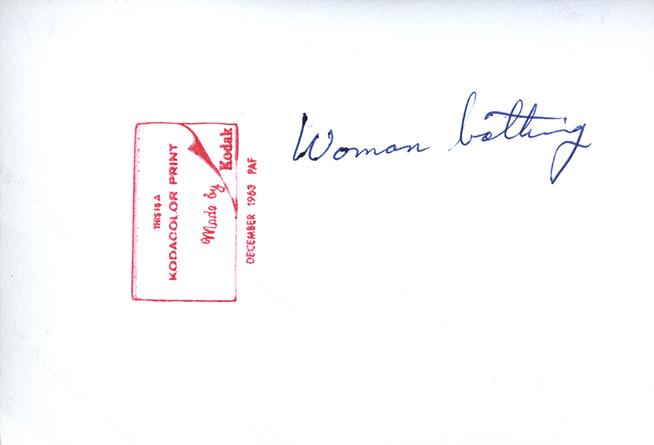 Woman batting
THIS IS A
KODACOLOR PRINT
Made by
Kodak
DECEMBER 1963 PAF